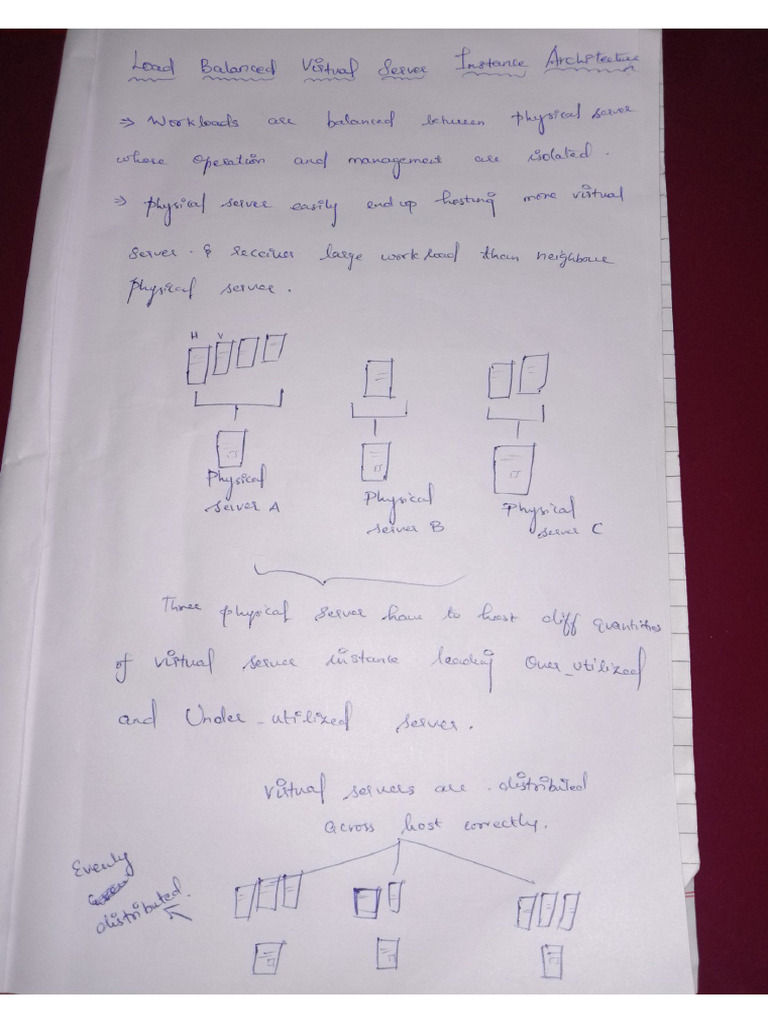 Load Balanced Virtual Server Instance Architecture
⇒ Workloads are balanced between physical server
whose operation and management are isolated.
⇒ Physical server easily end up hosting more virtual
server. & receives large workload than neighbour
physical server.
H V
Physical
server A
Physical
server B
Physical
server C
Three physical server have to host diff quantities
of virtual server instance leading Over_utilized
and Under_utilized server.
Virtual servers are distributed
across host correctly.
Evenly
distributed.